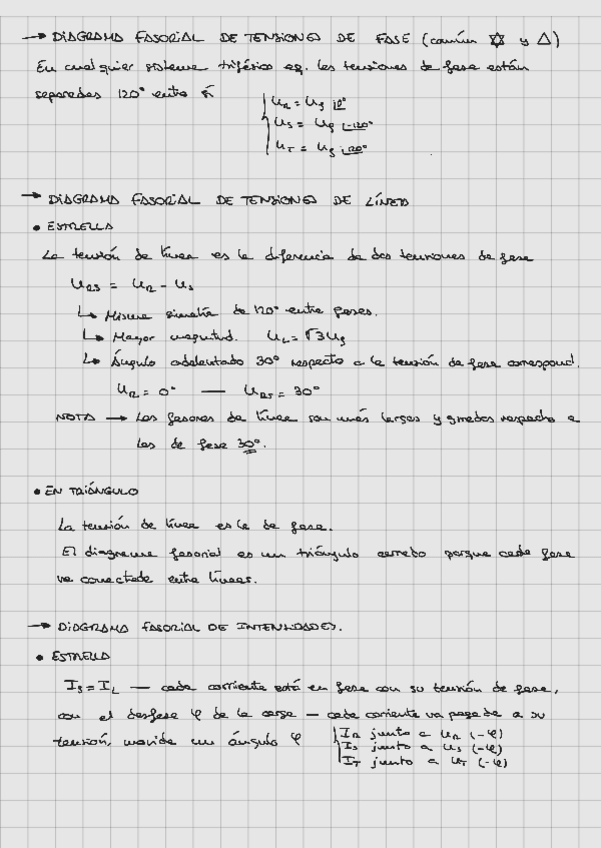 → DIAGRAMA FASORIAL DE TENSIONES DE FASE (común ✡ y △)
En cualquier sistema trifásico eq. las tensiones de fase están
separadas 120° entre sí
U_R = U_f |0°
U_S = U_f |-120°
U_T = U_f |120°
→ DIAGRAMA FASORIAL DE TENSIONES DE LÍNEA
• ESTRELLA
La tensión de línea es la diferencia de dos tensiones de fase
U_RS = U_R - U_S
↳ Misma simetría de 120° entre fases.
↳ Mayor magnitud. U_L = √3 U_f
↳ Ángulo adelantado 30° respecto a la tensión de fase correspond.
U_R = 0° — U_RST = 30°
NOTA → Los fasores de línea son más largos y girados respecto a
los de fase 30°.
• EN TRIÁNGULO
La tensión de línea es la de fase.
El diagrama fasorial es un triángulo cerrado porque cada fase
va conectada entre líneas.
→ DIAGRAMA FASORIAL DE INTENSIDADES.
• ESTRELLA
I_f = I_L — cada corriente está en fase con su tensión de fase,
con el desfase φ de la carga — cada corriente va pegada a su
tensión, movida un ángulo φ
I_R junto a U_R (-φ)
I_S junto a U_S (-φ)
I_T junto a U_T (-φ)